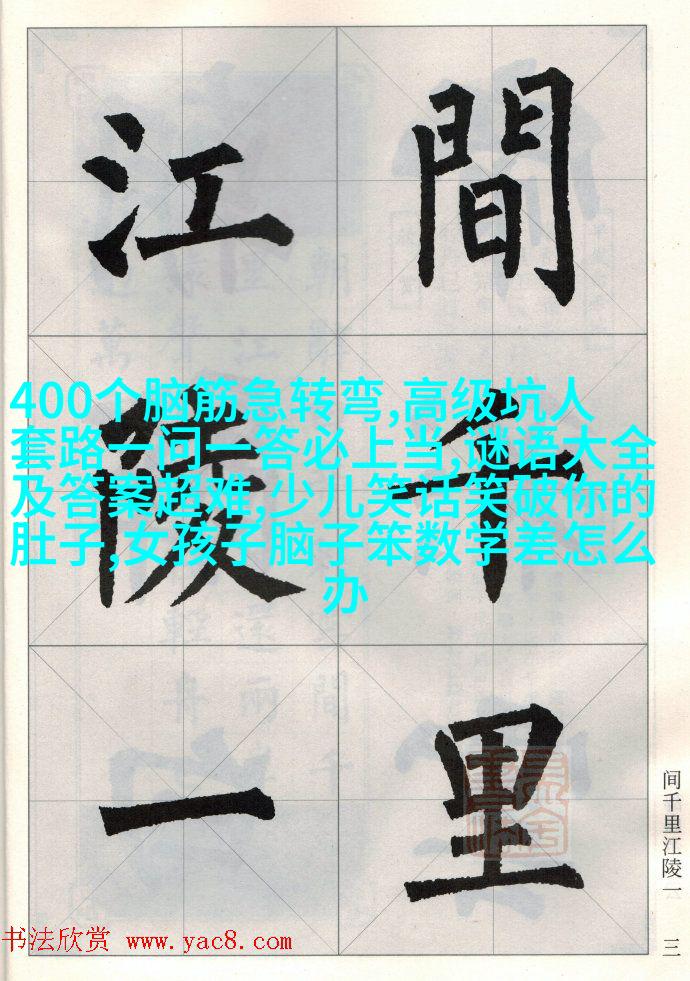 間千里
江陵一
400个脑筋急转弯,高级坑人
套路一问一答必上当,谜语大全
及答案超难,少儿笑话笑破你的
肚子,女孩子脑子笨数学差怎么
办
间千里江陵一
三
书法欣赏 www.yac8.com